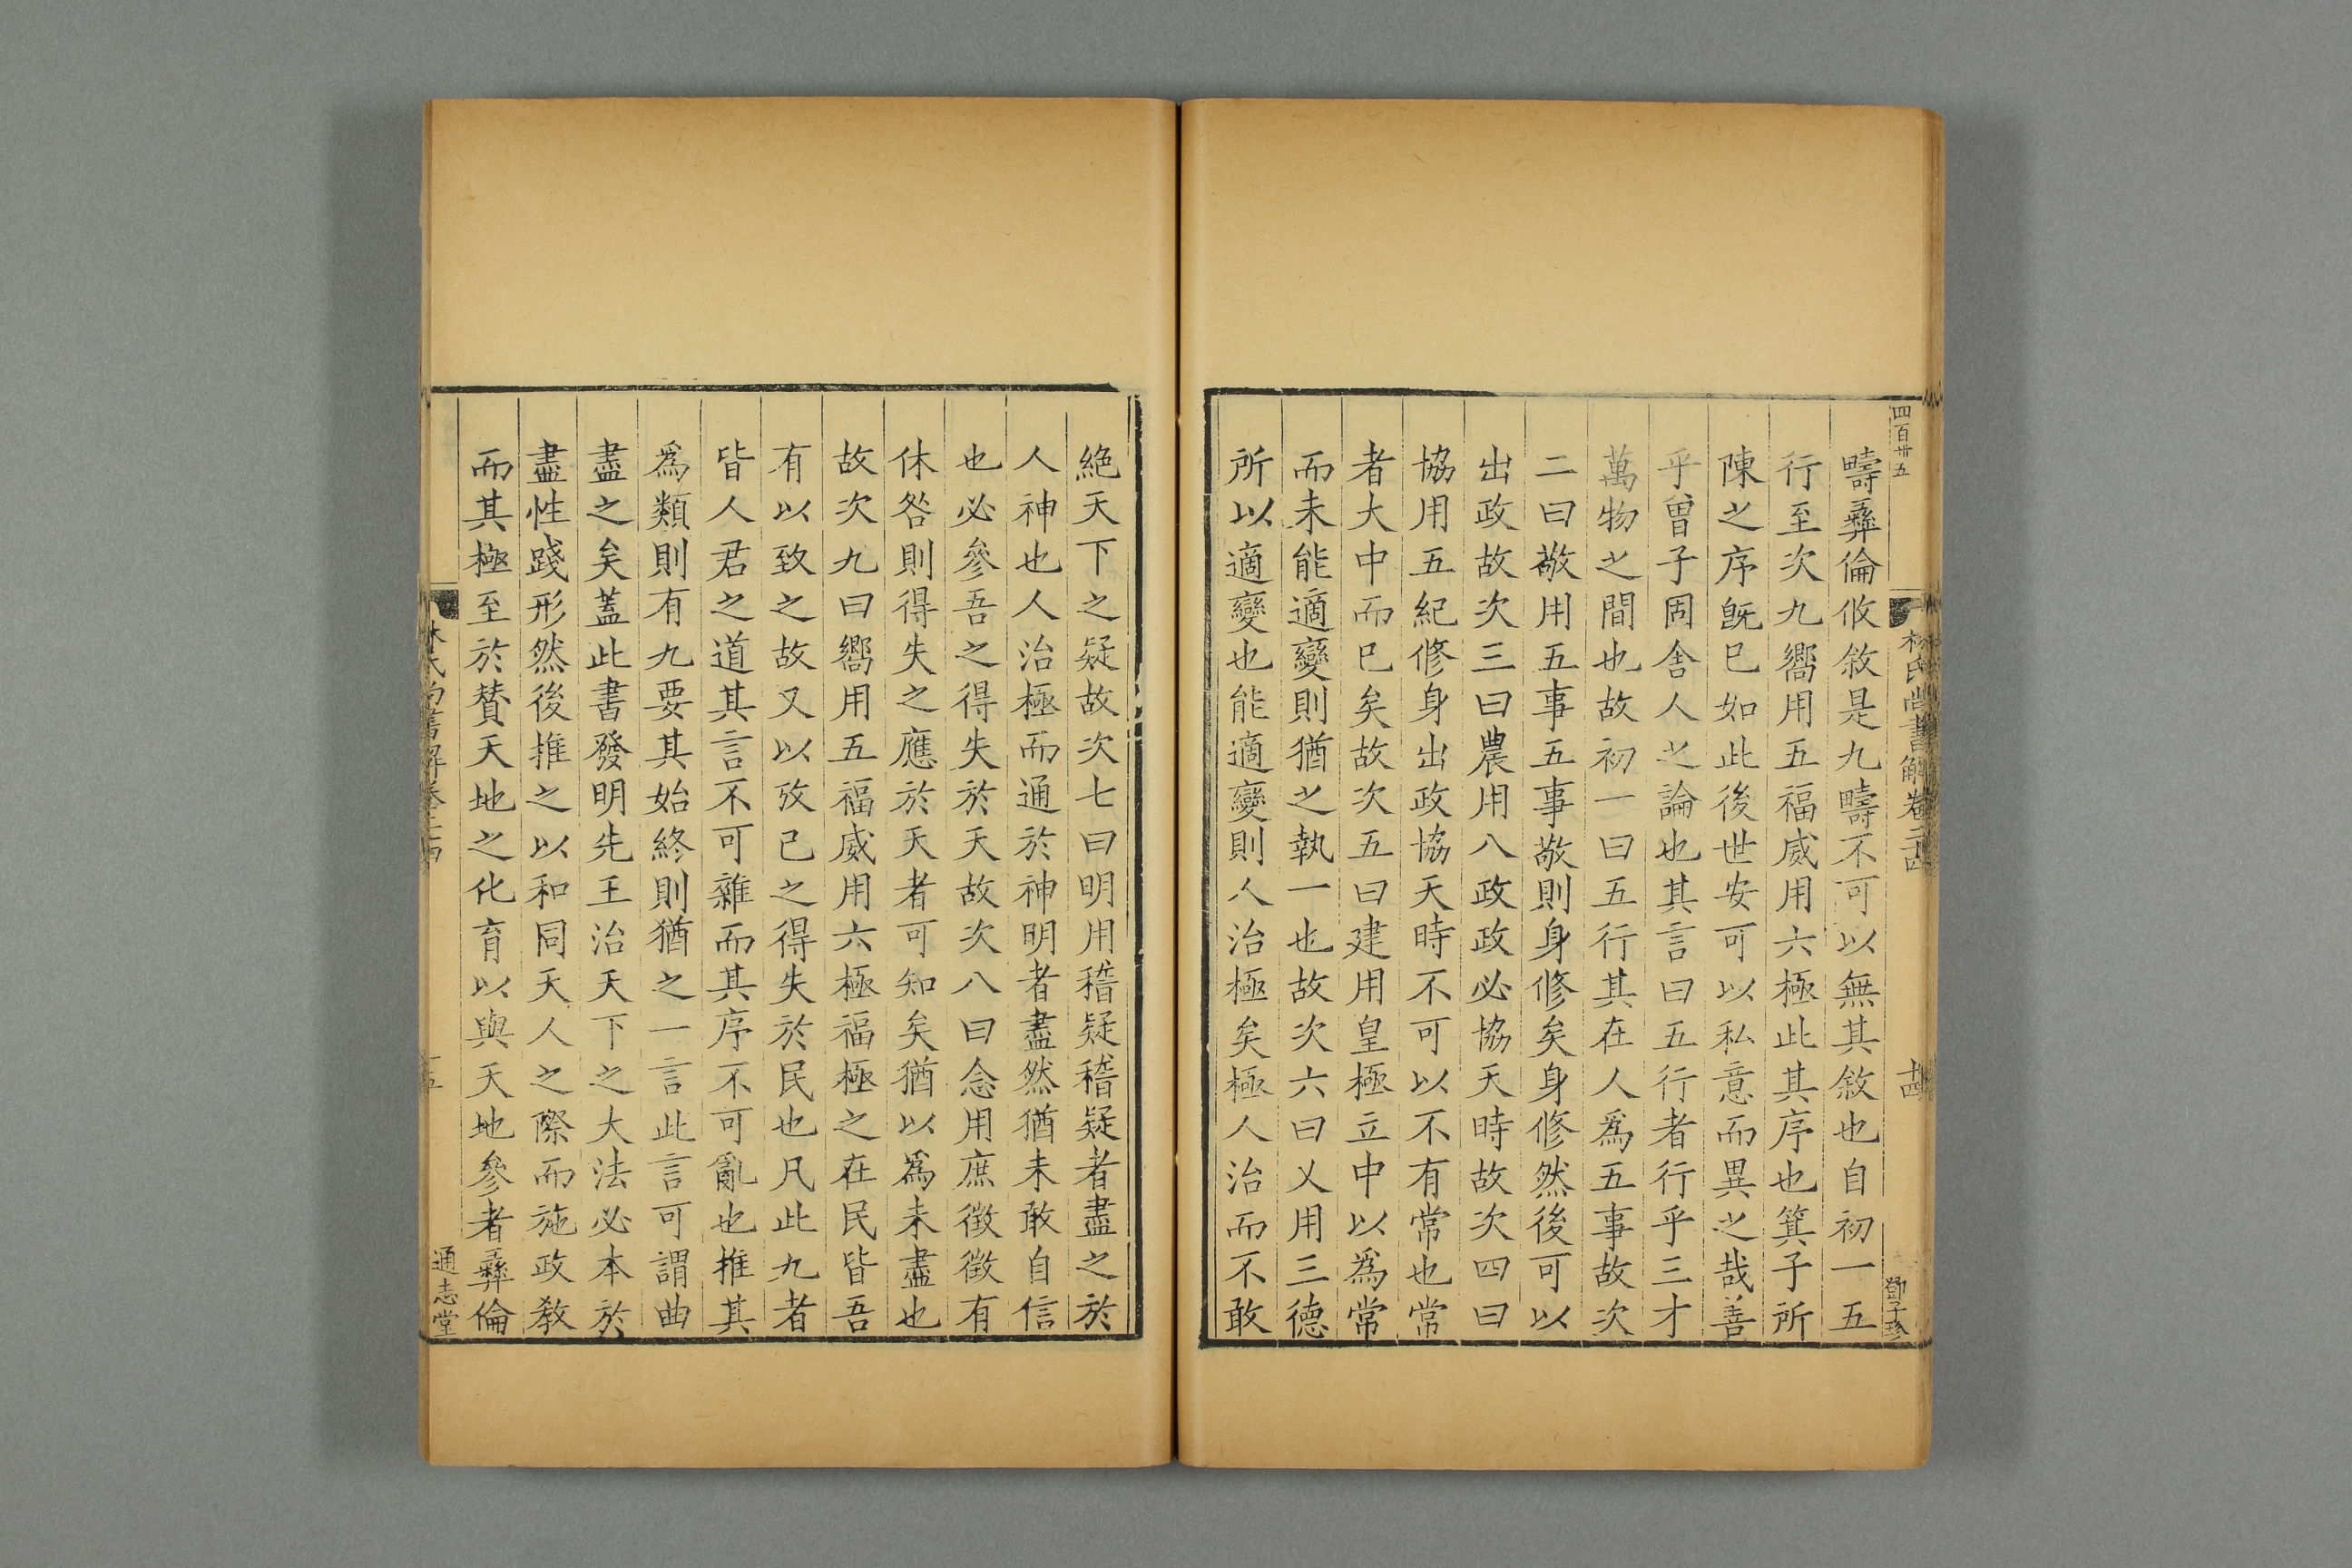 四百廿五
林氏尚書解卷二十四
十四
鄧子珍
疇彞倫攸敘是九疇不可以無其敘也自初一五
行至次九嚮用五福威用六極此其序也箕子所
陳之序旣巳如此後世安可以私意而異之哉善
乎曾子固舍人之論也其言曰五行者行乎三才
萬物之間也故初一曰五行其在人爲五事故次
二曰敬用五事五事敬則身修矣身修然後可以
出政故次三曰農用八政政必協天時故次四曰
協用五紀修身出政協天時不可以不有常也常
者大中而巳矣故次五曰建用皇極立中以爲常
而未能適變則猶之執一也故次六曰乂用三德
所以適變也能適變則人治極矣極人治而不敢
絶天下之疑故次七曰明用稽疑稽疑者盡之於
人神也人治極而通於神明者盡然猶未敢自信
也必參吾之得失於天故次八曰念用庶徴徴有
休咎則得失之應於天者可知矣猶以爲未盡也
故次九曰嚮用五福威用六極福極之在民皆吾
有以致之故又以攷己之得失於民也凡此九者
皆人君之道其言不可雜而其序不可亂也推其
爲類則有九要其始終則猶之一言此言可謂曲
盡之矣蓋此書發明先王治天下之大法必本於
盡性踐形然後推之以和同天人之際而施政敎
而其極至於賛天地之化育以與天地參者彞倫
林氏尚書解卷二十四
十五
通志堂